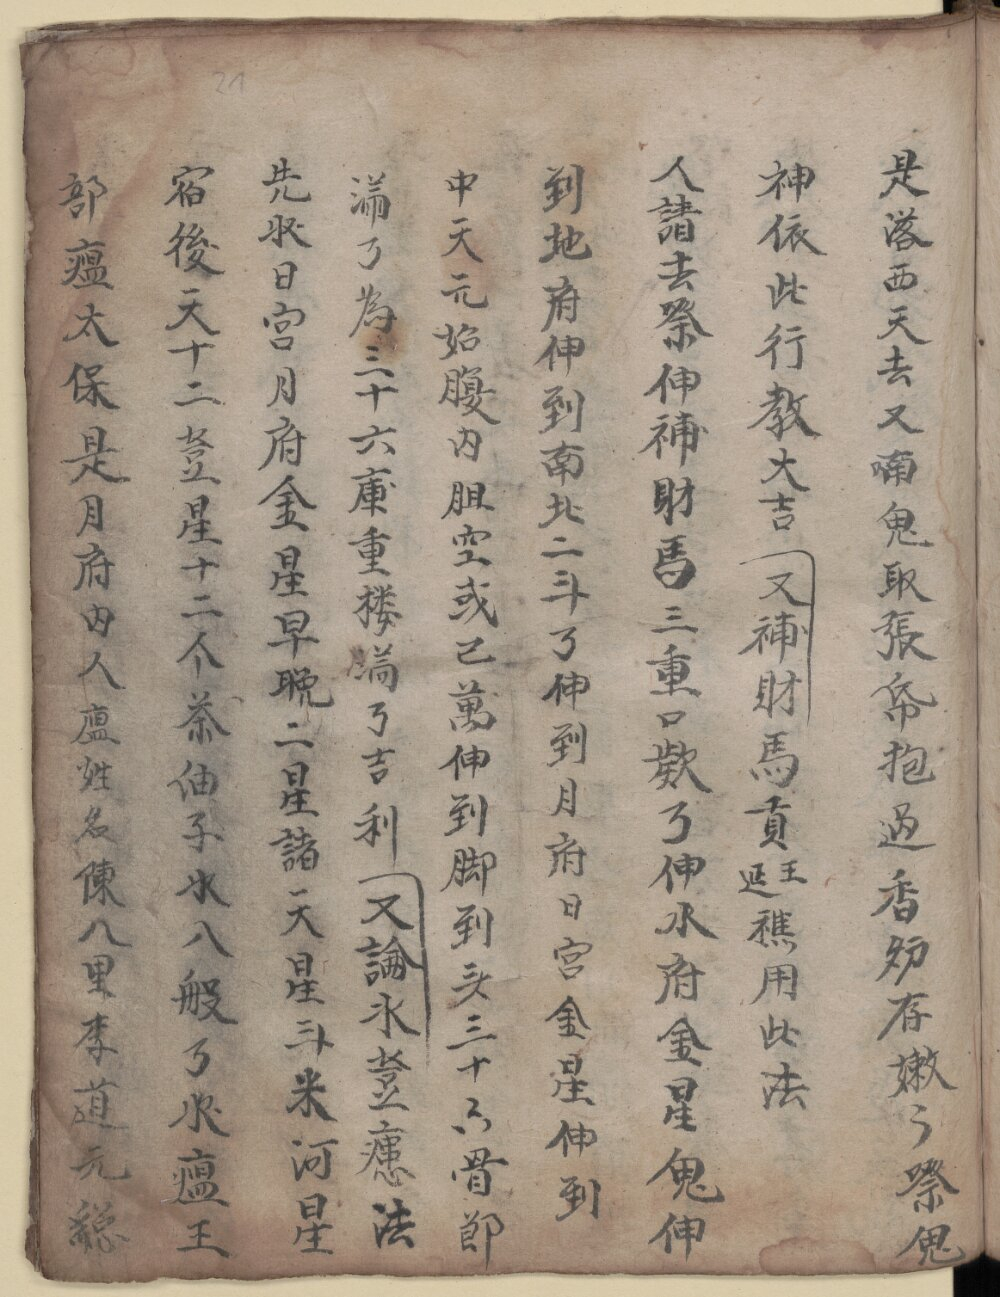 是落西天去又喃鬼取張㡌抱過香炉存嫩了祭鬼
神依此行教大吉又補財馬貢王延樵用此法
人諸去祭伸補財馬三重口歎了伸水府金星鬼伸
到地府伸到南北二斗了伸到月府日宮金星伸到
中天元始腹内胆空或已萬伸到脚到头三十六骨節
滿了為三十六庫重楼滿了吉利又論水䓁瘟法
先收日宮月府金星早晚二星諸天星斗米河星
宿後天十二䓁星十二个茶伷子水八般了收瘟王
部瘟太保是月府内人瘟姓名陳八里李道元
24